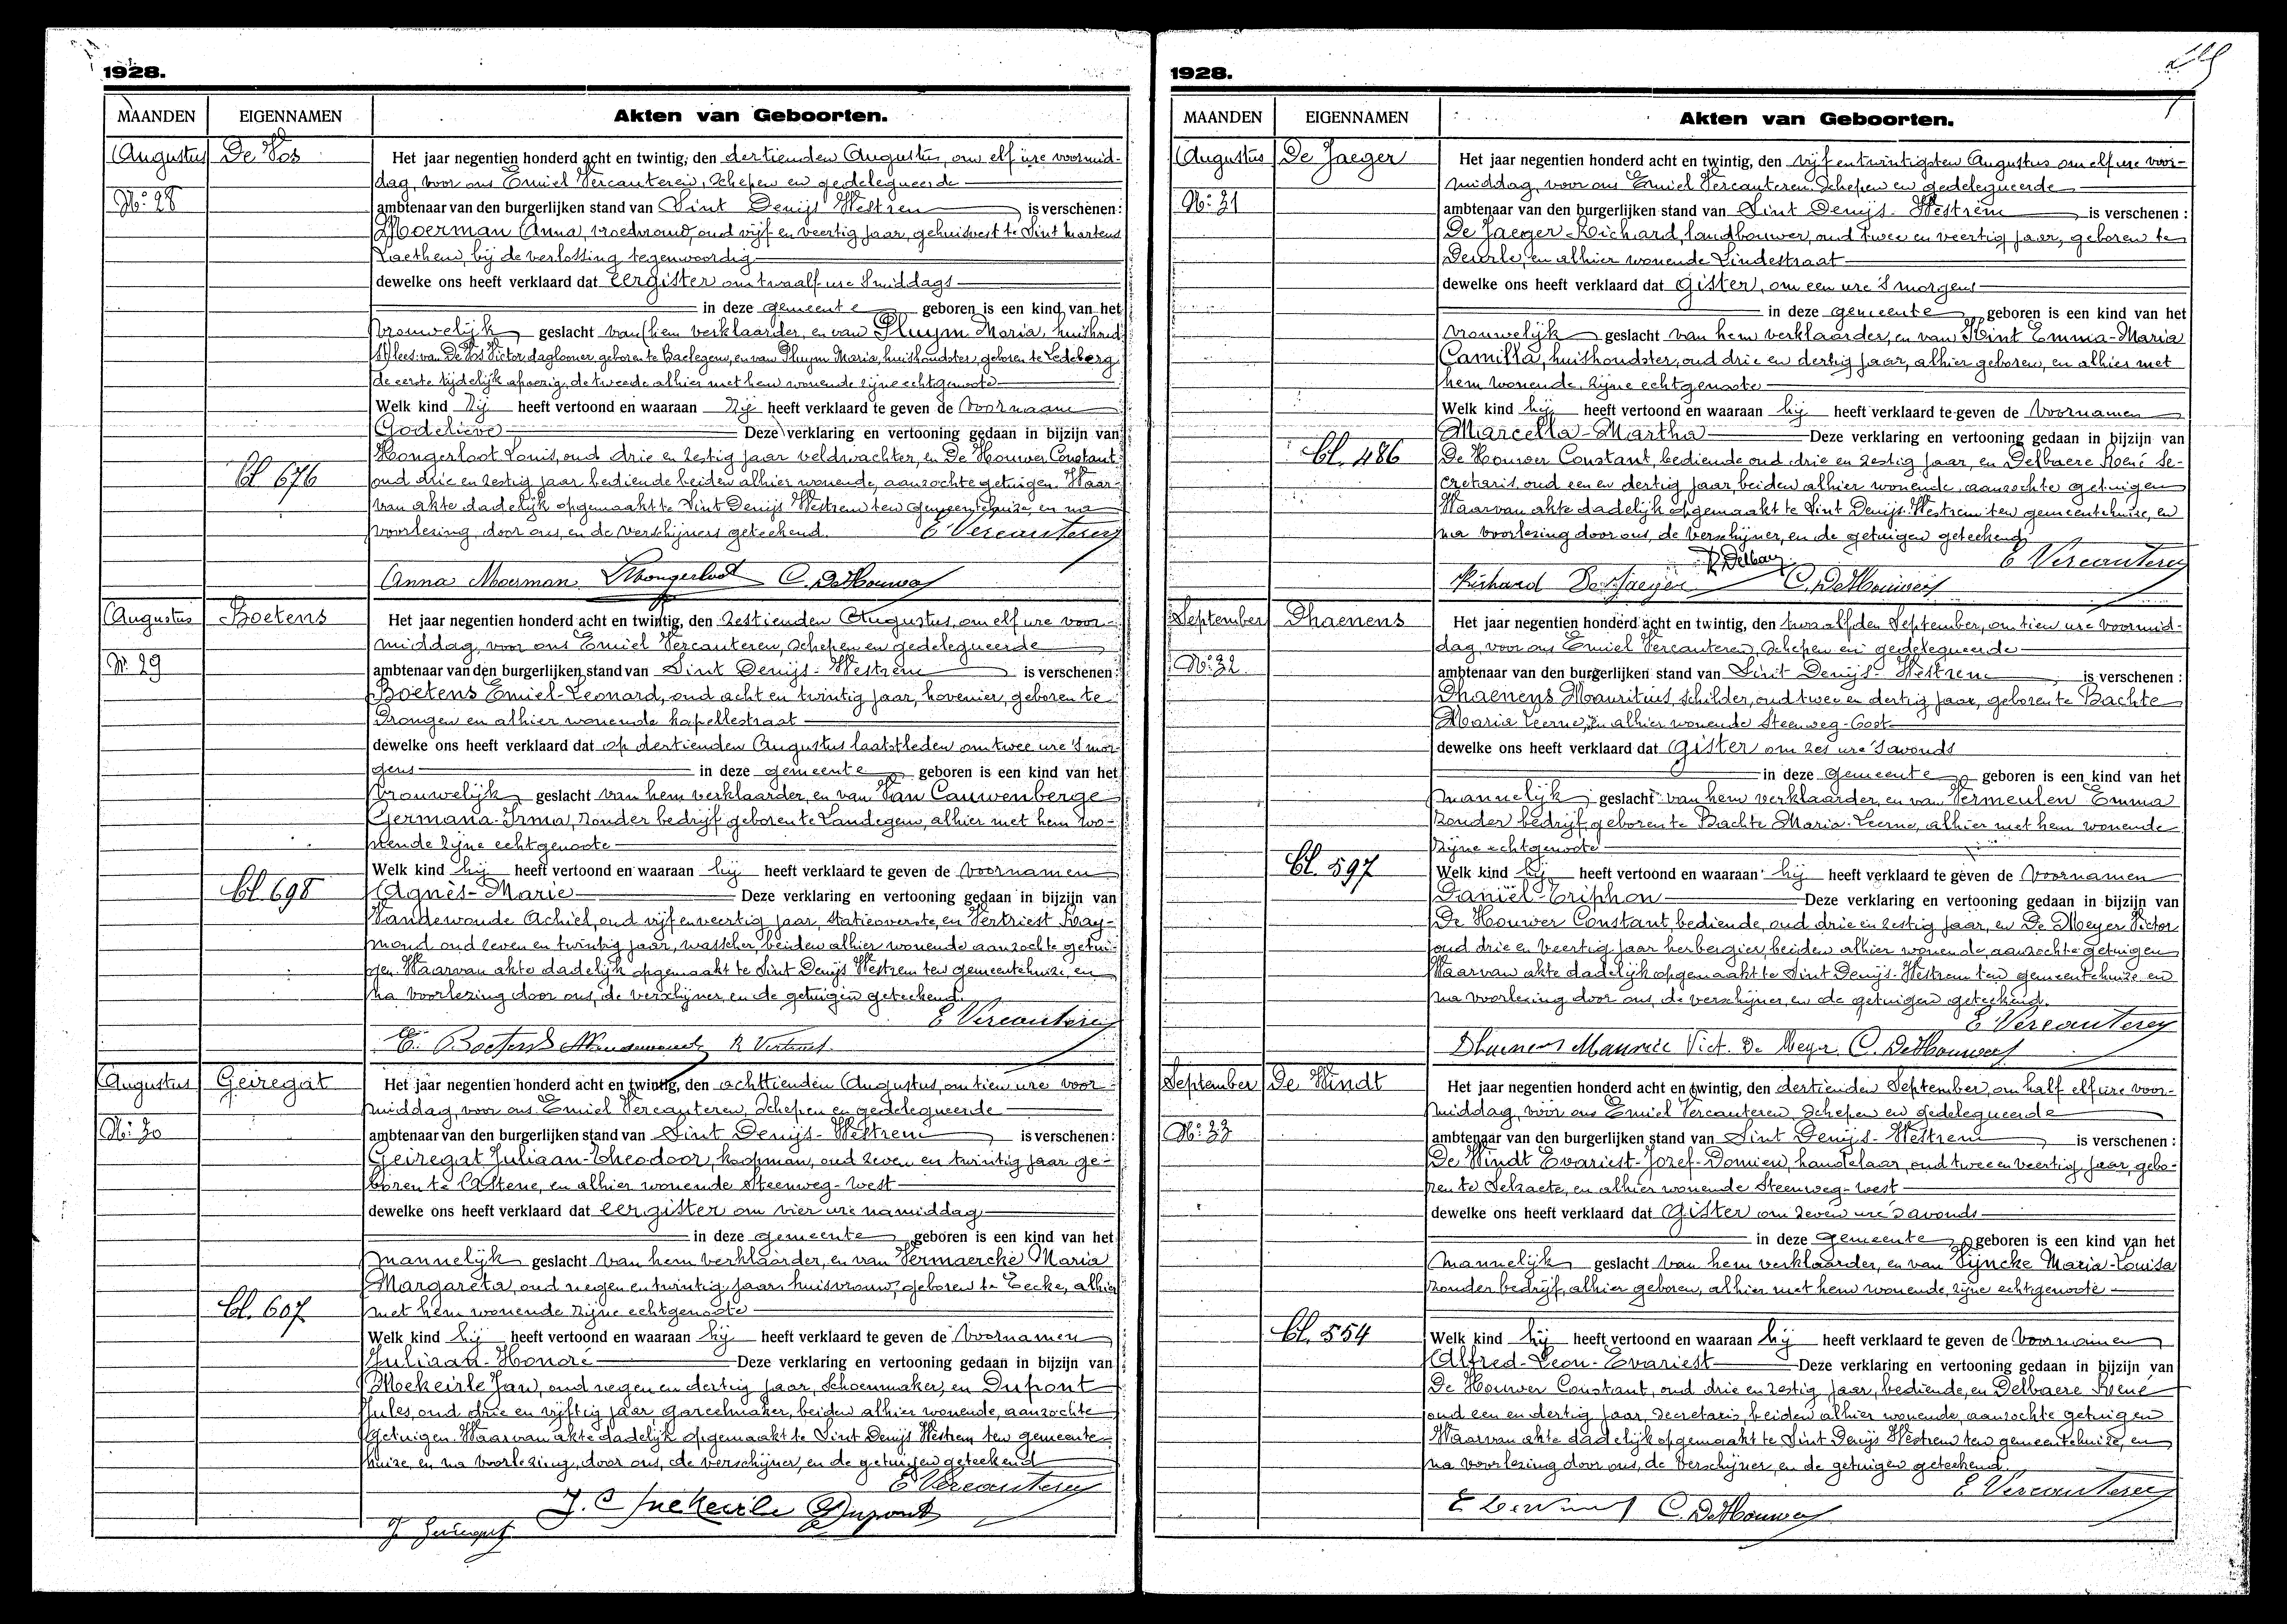 1928.
MAANDEN EIGENNAMEN Akten van Geboorten.
Augustus De Vos Het jaar negentien honderd acht en twintig, den dertienden Augustus, om elf ure voormid-
dag, voor ons Emiel Vercauteren, Schepen en gedelegueerde
No: 28 ambtenaar van den burgerlijken stand van Sint Denijs Westrem is verschenen:
Moerman Anna, vroedvrouw, oud vijf en veertig jaar, gehuisvest te Sint Martens
Laethem, bij de verlossing tegenwoordig
dewelke ons heeft verklaard dat eergister om twaalf ure 's middags
in deze gemeente geboren is een kind van het
vrouwelijk geslacht van hem verklaarder, en van Pluym Maria, huishoud:
lees: van De Vos Victor, daglooner, geboren te Baelegem, en van Pluym Maria, huishoudster, geboren te Ledeberg
de eerste tijdelijk afwezig, de tweede alhier met hem wonende zijne echtgenoote
Welk kind zij heeft vertoond en waaraan zij heeft verklaard te geven de voornaam
Godelieve Deze verklaring en vertooning gedaan in bijzijn van
Hongerloot Louis, oud drie en zestig jaar veldwachter, en De Houwer Constant
bl 676 oud drie en zestig jaar bediende beiden alhier wonende, aanzochte getuigen. Waar-
van akte dadelijk opgemaakt te Sint Denijs Westrem ten gemeentehuize, en na
voorlezing, door ons, en de verschijners geteekend. E Vercauteren
Anna Moerman L Hongerloot C. De Houwer
Augustus Boetens Het jaar negentien honderd acht en twintig, den zestienden Augustus, om elf ure voor-
middag, voor ons Emiel Vercauteren, Schepen en gedelegueerde
No. 29 ambtenaar van den burgerlijken stand van Sint Denijs-Westrem is verschenen:
Boetens Emiel-Leonard, oud acht en twintig jaar, hovenier, geboren te
Drongen en alhier wonende kapellestraat
dewelke ons heeft verklaard dat op dertienden Augustus laatstleden om twee ure 's mor-
gens in deze gemeente geboren is een kind van het
vrouwelijk geslacht van hem verklaarder, en van Van Cauwenberge
Germana-Irma, zonder bedrijf geboren te Landegem, alhier met hem wo-
nende zijne echtgenoote
Welk kind hij heeft vertoond en waaraan hij heeft verklaard te geven de voornamen
bl. 698 Agnès-Marie Deze verklaring en vertooning gedaan in bijzijn van
Vandewoude Achiel, oud vijf en veertig jaar, statieoverste, en Vertriest Ray-
mond oud zeven en twintig jaar, wasscher, beiden alhier wonende aanzochte getui-
gen. Waarvan akte dadelijk opgemaakt te Sint Denijs Westrem ten gemeentehuize, en
na voorlezing door ons, de verschijner, en de getuigen geteekend.
E Vercauteren
E. Boetens R Vertriest
Augustus Geiregat Het jaar negentien honderd acht en twintig, den achttienden Augustus, om tien ure voor-
middag, voor ons Emiel Vercauteren, Schepen en gedelegueerde
No: 30 ambtenaar van den burgerlijken stand van Sint Denijs-Westrem is verschenen:
Geiregat Juliaan-Theodoor, koopman, oud zeven en twintig jaar ge-
boren te Astene, en alhier wonende Steenweg-west
dewelke ons heeft verklaard dat eergister om vier ure namiddag
in deze gemeente geboren is een kind van het
mannelijk geslacht van hem verklaarder, en van Vermaercke Maria
Margareta, oud negen en twintig jaar, huisvrouw, geboren te Eecke, alhier
bl. 607 met hem wonende zijne echtgenoote
Welk kind hij heeft vertoond en waaraan hij heeft verklaard te geven de voornamen
Juliaan-Honoré Deze verklaring en vertooning gedaan in bijzijn van
Moekeirle Jan, oud negen en dertig jaar, Schoenmaker, en Dupont
Jules, oud drie en vijftig jaar gareelmaker, beiden alhier wonende, aanzochte
getuigen. Waarvan akte dadelijk opgemaakt te Sint Denijs Westrem ten gemeente-
huize, en na voorlezing, door ons, de verschijner, en de getuigen geteekend
E Vercauteren
Dupont
1928.
MAANDEN EIGENNAMEN Akten van Geboorten.
Augustus De Jaeger Het jaar negentien honderd acht en twintig, den vijf en twintigsten Augustus om elf ure voor-
middag, voor ons Emiel Vercauteren Schepen en gedelegueerde
No: 31 ambtenaar van den burgerlijken stand van Sint Denijs-Westrem is verschenen:
De Jaeger-Richard, landbouwer, oud twee en veertig jaar, geboren te
Deurle, en alhier wonende Lindestraat
dewelke ons heeft verklaard dat gister, om een ure 's morgens
in deze gemeente geboren is een kind van het
vrouwelijk geslacht van hem verklaarder, en van Wint Emma-Maria
Camilla, huishoudster, oud drie en dertig jaar, alhier geboren, en alhier met
hem wonende, zijne echtgenoote
Welk kind hij heeft vertoond en waaraan hij heeft verklaard te geven de voornamen
Marcella-Martha Deze verklaring en vertooning gedaan in bijzijn van
bl. 486 De Houwer Constant, bediende oud drie en zestig jaar, en Delbaere René Se-
cretaris, oud een en dertig jaar, beiden alhier wonende, aanzochte getuigen
Waarvan akte dadelijk opgemaakt te Sint Denijs-Westrem ten gemeentehuize, en
na voorlezing door ons, de verschijner, en de getuigen geteekend.
R Delbaere E Vercauteren
Richard De Jaeger C. De Houwer
September Dhaenens Het jaar negentien honderd acht en twintig, den twaalfden September, om tien ure voormid-
dag, voor ons Emiel Vercauteren, Schepen en gedelegueerde
No: 32 ambtenaar van den burgerlijken stand van Sint Denijs-Westrem is verschenen:
Dhaenens Mauritius, schilder, oud twee en dertig jaar, geboren te Bachte
Maria Leerne, en alhier wonende Steenweg-Oost
dewelke ons heeft verklaard dat gister om zes ure 's avonds
in deze gemeente geboren is een kind van het
mannelijk geslacht van hem verklaarder, en van Vermeulen Emma
zonder bedrijf, geboren te Bachte Maria-Leerne, alhier met hem wonende
zijne echtgenoote
bl. 597 Welk kind hij heeft vertoond en waaraan hij heeft verklaard te geven de voornamen
Daniël-Triphon Deze verklaring en vertooning gedaan in bijzijn van
De Houwer Constant, bediende, oud drie en zestig jaar, en De Meyer Victor
oud drie en veertig jaar herbergier, beiden alhier wonende, aanzochte getuigen
Waarvan akte dadelijk opgemaakt te Sint Denijs-Westrem ten gemeentehuize en
na voorlezing door ons, de verschijner, en de getuigen geteekend.
E Vercauteren
Dhaenens Maurice Vict. De Meyer C. De Houwer
September De Windt Het jaar negentien honderd acht en twintig, den dertienden September, om half elf ure voor-
middag, voor ons Emiel Vercauteren, Schepen en gedelegueerde
No: 33 ambtenaar van den burgerlijken stand van Sint Denijs-Westrem is verschenen:
De Windt Evariest-Jozef-Domien, handelaar, oud twee en veertig jaar, gebo-
ren te Selzaete, en alhier wonende Steenweg-west
dewelke ons heeft verklaard dat gister om zeven ure 's avonds
in deze gemeente geboren is een kind van het
mannelijk geslacht van hem verklaarder, en van Vijncke Maria-Louisa
zonder bedrijf, alhier geboren, alhier met hem wonende, zijne echtgenoote
bl. 554 Welk kind hij heeft vertoond en waaraan hij heeft verklaard te geven de voornamen
Alfred-Leon-Evariest Deze verklaring en vertooning gedaan in bijzijn van
De Houwer Constant, oud drie en zestig jaar, bediende, en Delbaere René
oud een en dertig jaar, Secretaris, beiden alhier wonende, aanzochte getuigen
Waarvan akte dadelijk opgemaakt te Sint Denijs Westrem ten gemeentehuize, en
na voorlezing door ons, de verschijner, en de getuigen geteekend.
E Vercauteren
C. De Houwer